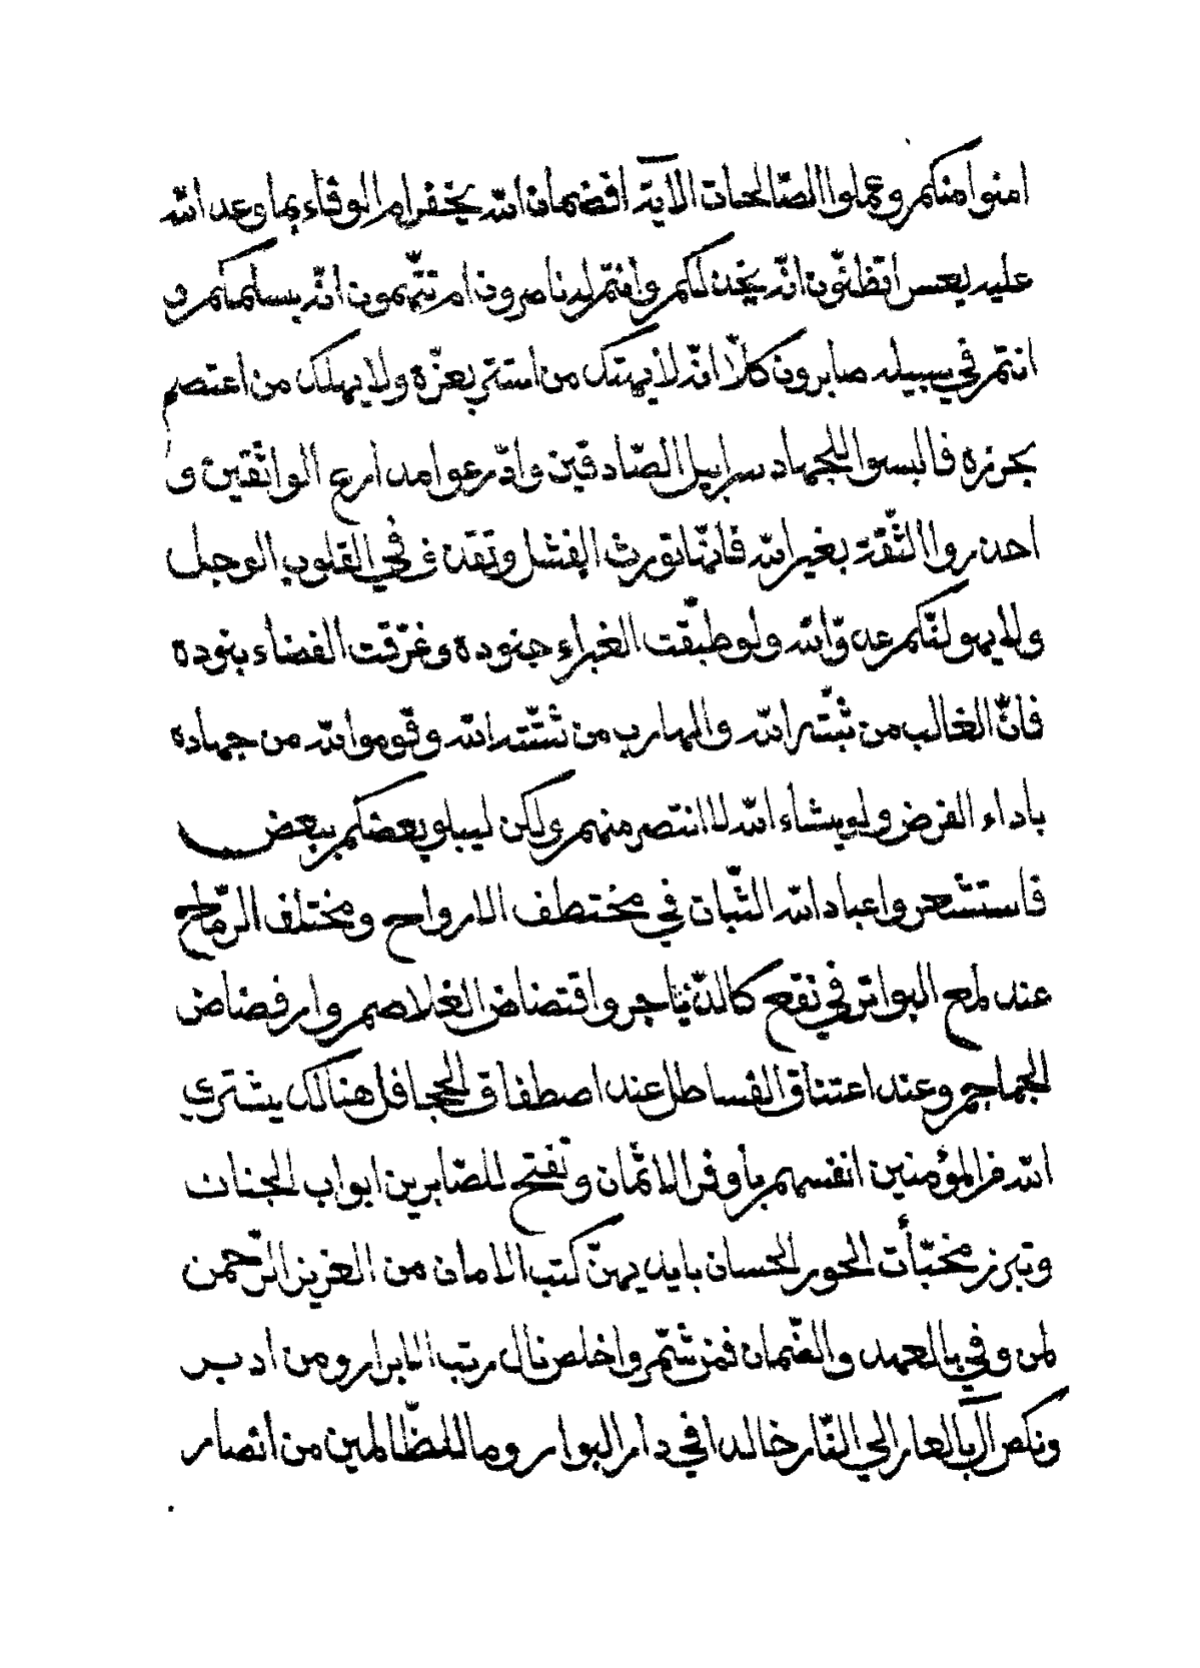 امنوا منكم وعملوا الصّالحات الآية افضمان الله يخفر ام الوفاء بما وعد الله
عليه يعسر اتظنّون انّه يخذلكم وانتم له ناصرون ام تتّهمون انّه يسلمكم و
انتم في سبيله صابرون كلّا انّه لا يهتك من استتر بعزّه ولا يهلك من اعتصم
بحرزه فالبسوا للجهاد سرابيل الصّادقين وادّرعوا مدارع الواثقين و
احذروا الثّقة بغير الله فانّها تورث الفشل وتقذف في القلوب الوجل
ولا يهولنّكم عدوّ الله ولو طبّقت الغبراء جنوده وغرّقت الفضاء بنوده
فانّ الغالب من ثبّته الله والهارب من شتّته الله وقوموا لله من جهاده
باداء الفرض ولو يشاء الله لانتصر منهم ولكن ليبلو بعضكم ببعض
فاستشعروا عباد الله الثّبات في مختطف الارواح ومختلف الرّماح
عند لمع البواتر في نقع كالدّياجر واقتضاض الغلاصم وارفضاض
الجماجم وعند اعتناق القساطل عند اصطفاق الجحافل هنالك يشتري
الله من المؤمنين انفسهم باوفر الاثمان وتفتح للصّابرين ابواب الجنات
وتبرز مخبّأت الحور الحسان بايديهنّ كتب الامان من العزيز الرّحمن
لمن وفي بالعهد والضّمان فمن شمّر واخلص نال رتب الابرار ومن ادبر
ونكص آب بالعار الي النّار خالدا في دار البوار وما للظّالمين من انصار